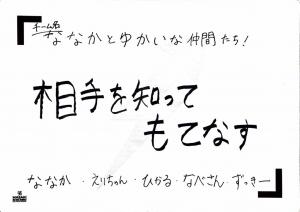 チーム名
ななかとゆかいな仲間たち!
相手を知って
もてなす
ななか・えりちゃん・ひかる・なべさん・ずっきー